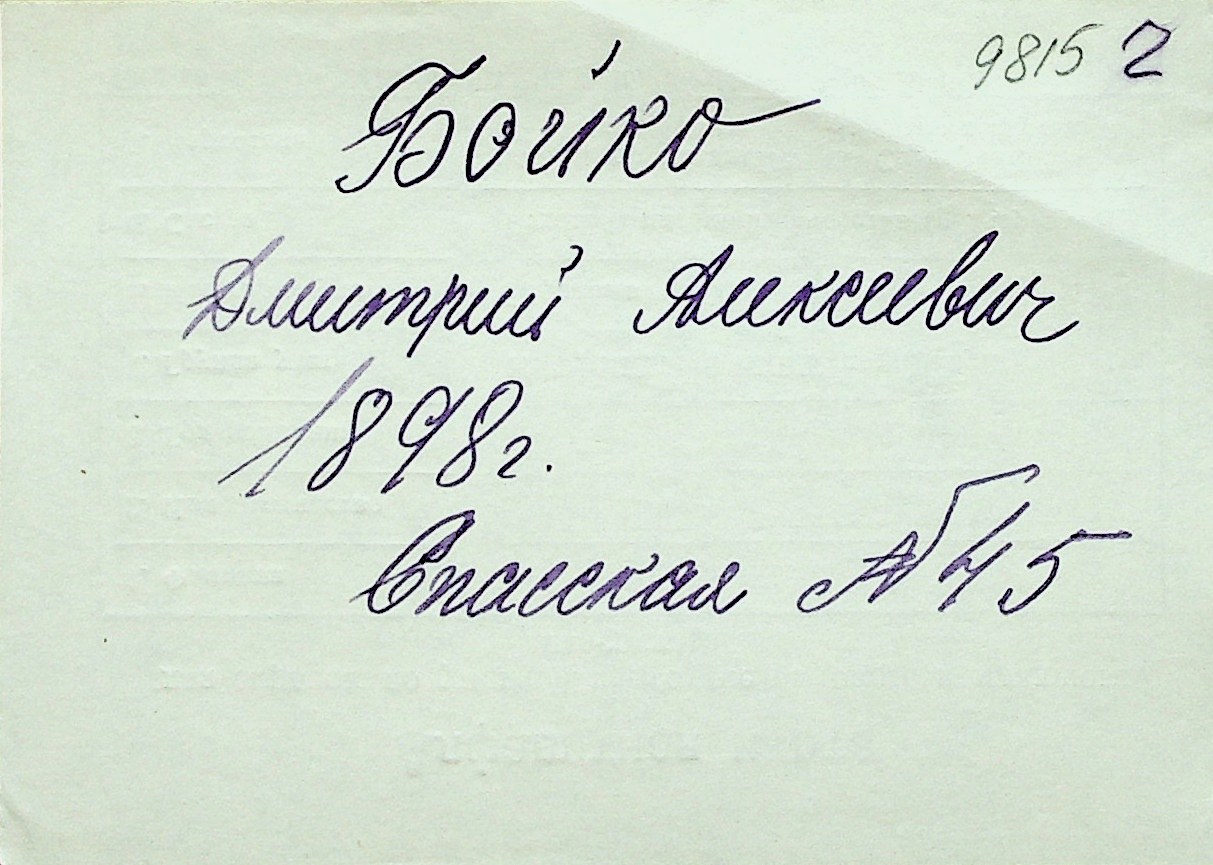 9815 2
Бойко
Дмитрий Алексеевич
1898г.
Спасская №45